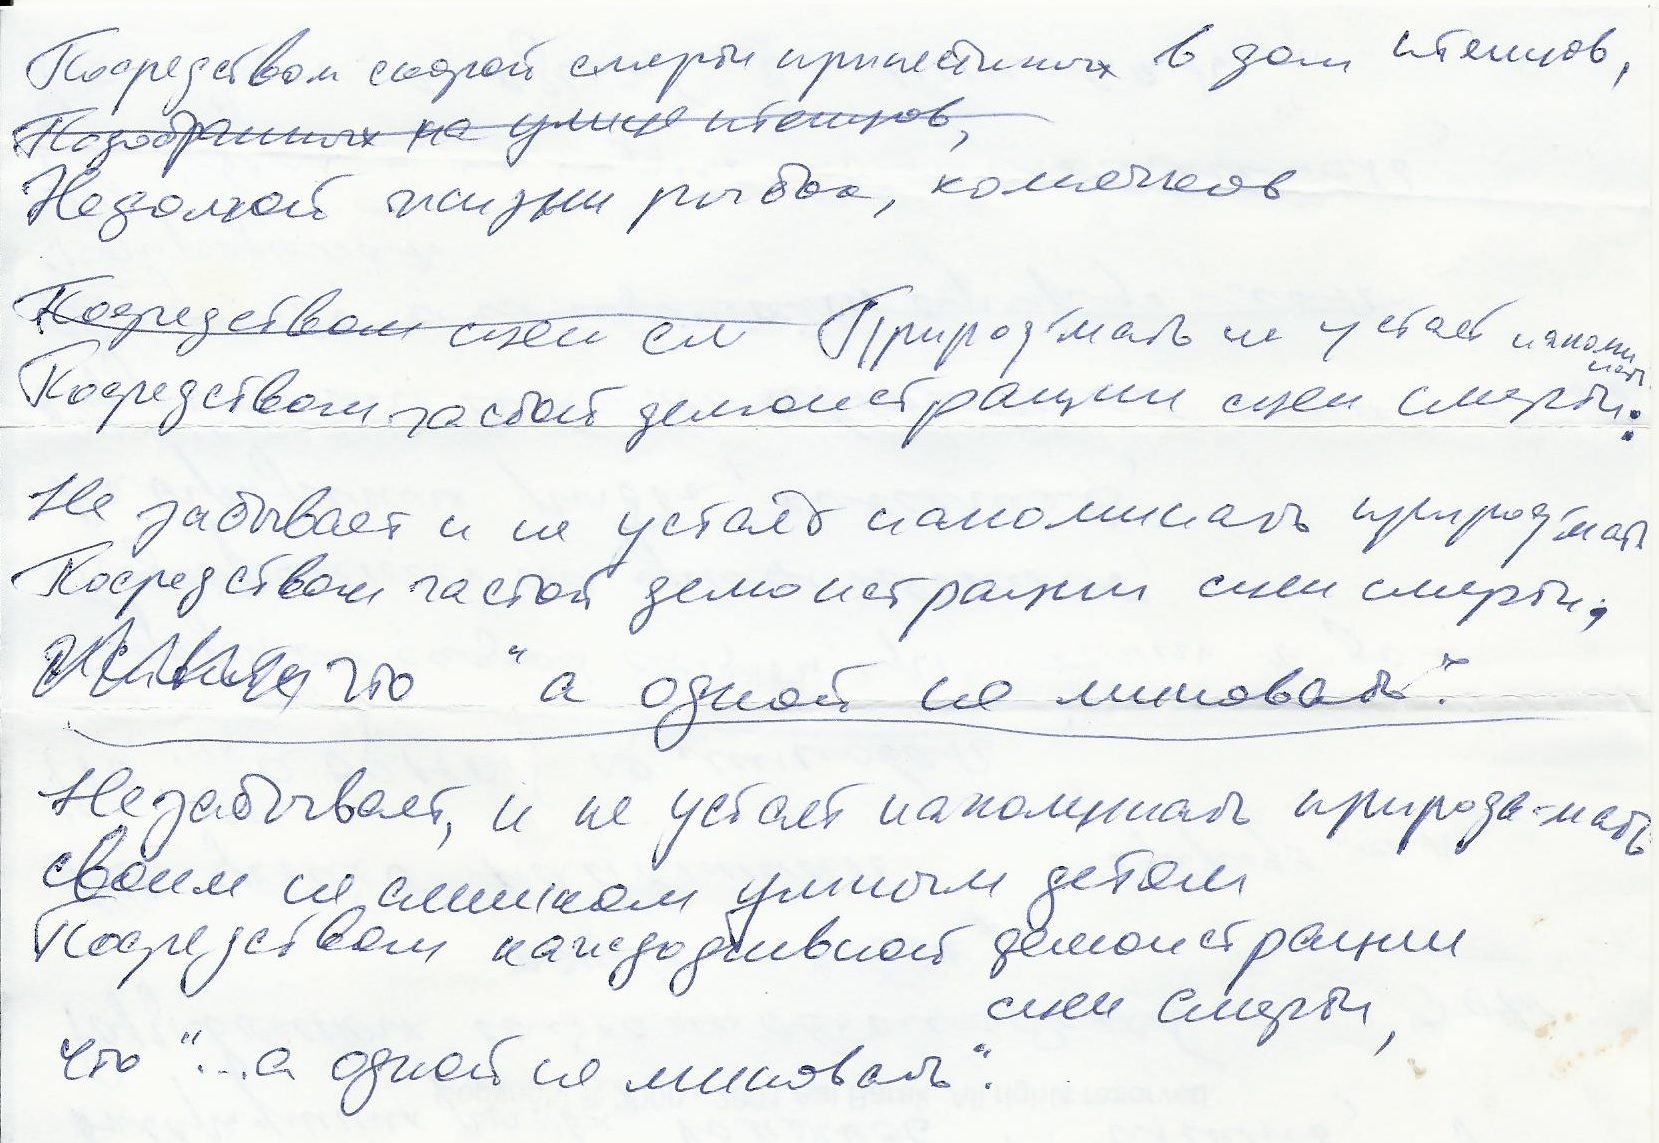 Посредством скорой смерти принесённых в дом птенцов,
Подобранных на улице птенцов,
Недолгой жизни рыбок, хомячков
Посредством сцен см Природ'мать не устаёт напоминать
Посредством частой демонстрации сцен смерти:
Не забывает и не устаёт напоминать природ'мать
Посредством частой демонстрации сцен смерти,
что "а одной не миновать".
Не забывает, и не устаёт напоминать природа-мать
своим не слишком умным детям
Посредством каждодневной демонстрации
сцен смерти,
что "...а одной не миновать".